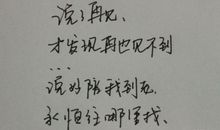 说了再见、
才发现再也见不到
...
说好陪我到老、
永恒往哪里找、